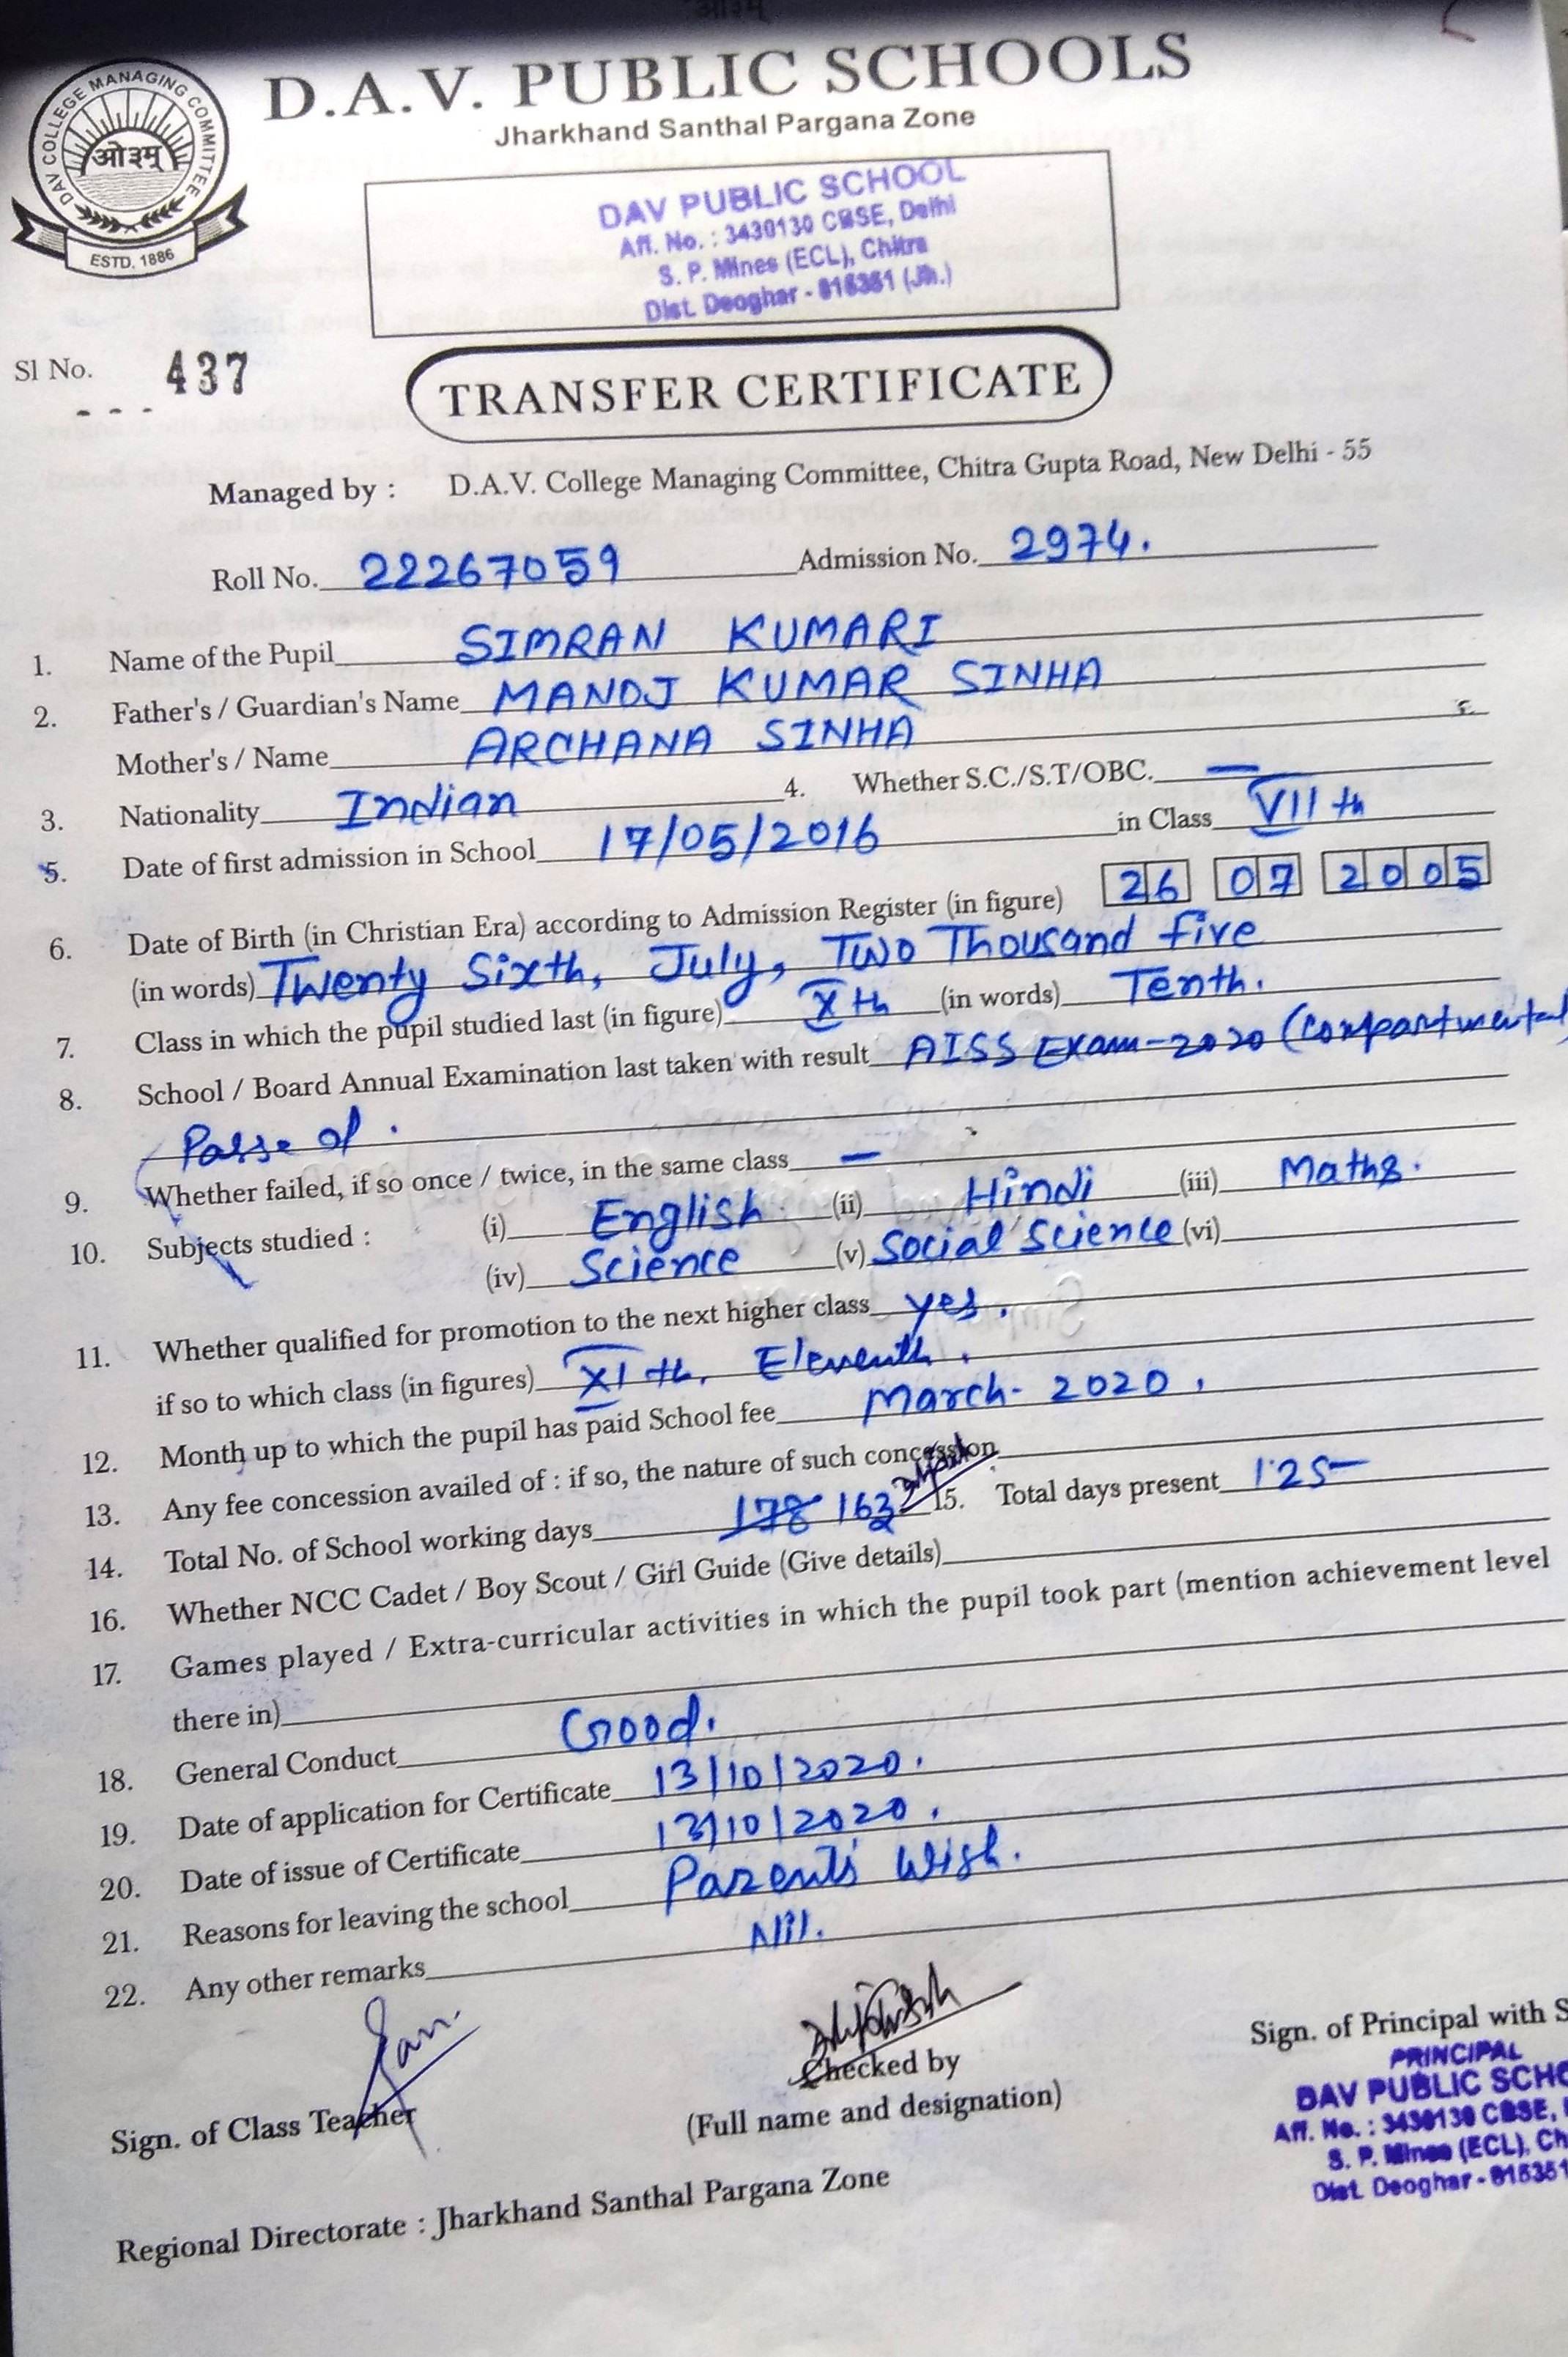 ओ३म्
D.A.V. PUBLIC SCHOOLS
Jharkhand Santhal Pargana Zone
DAV COLLEGE MANAGING COMMITTEE
ओ३म्
ESTD. 1886
DAV PUBLIC SCHOOL
Aff. No. : 3430130 CBSE, Delhi
S. P. Mines (ECL), Chitra
Dist. Deoghar - 815351 (Jh.)
Sl No. 437
TRANSFER CERTIFICATE
Managed by : D.A.V. College Managing Committee, Chitra Gupta Road, New Delhi - 55
Roll No. 22267059 Admission No. 2974.
1. Name of the Pupil SIMRAN KUMARI
2. Father's / Guardian's Name MANOJ KUMAR SINHA
Mother's / Name ARCHANA SINHA
3. Nationality Indian 4. Whether S.C./S.T/OBC. —
5. Date of first admission in School 17/05/2016 in Class VII th
6. Date of Birth (in Christian Era) according to Admission Register (in figure) 26 07 2005
(in words) Twenty Sixth, July, Two Thousand five
7. Class in which the pupil studied last (in figure) X th (in words) Tenth.
8. School / Board Annual Examination last taken with result AISS Exam-2020 (Compartmental
Passed.
9. Whether failed, if so once / twice, in the same class —
10. Subjects studied : (i) English (ii) Hindi (iii) Maths.
(iv) Science (v) Social Science (vi)
11. Whether qualified for promotion to the next higher class yes.
if so to which class (in figures) XI th, Eleventh.
12. Month up to which the pupil has paid School fee March- 2020.
13. Any fee concession availed of : if so, the nature of such concession
14. Total No. of School working days 178 163 15. Total days present 125
16. Whether NCC Cadet / Boy Scout / Girl Guide (Give details)
17. Games played / Extra-curricular activities in which the pupil took part (mention achievement level
there in)
18. General Conduct Good.
19. Date of application for Certificate 13/10/2020.
20. Date of issue of Certificate 13/10/2020.
21. Reasons for leaving the school Parents Wish.
22. Any other remarks Nil.
Sign. of Class Teacher
Checked by
(Full name and designation)
Sign. of Principal with S
PRINCIPAL
DAV PUBLIC SCHO
Aff. No. : 3430130 CBSE,
S. P. Mines (ECL), Ch
Dist. Deoghar - 815351
Regional Directorate : Jharkhand Santhal Pargana Zone